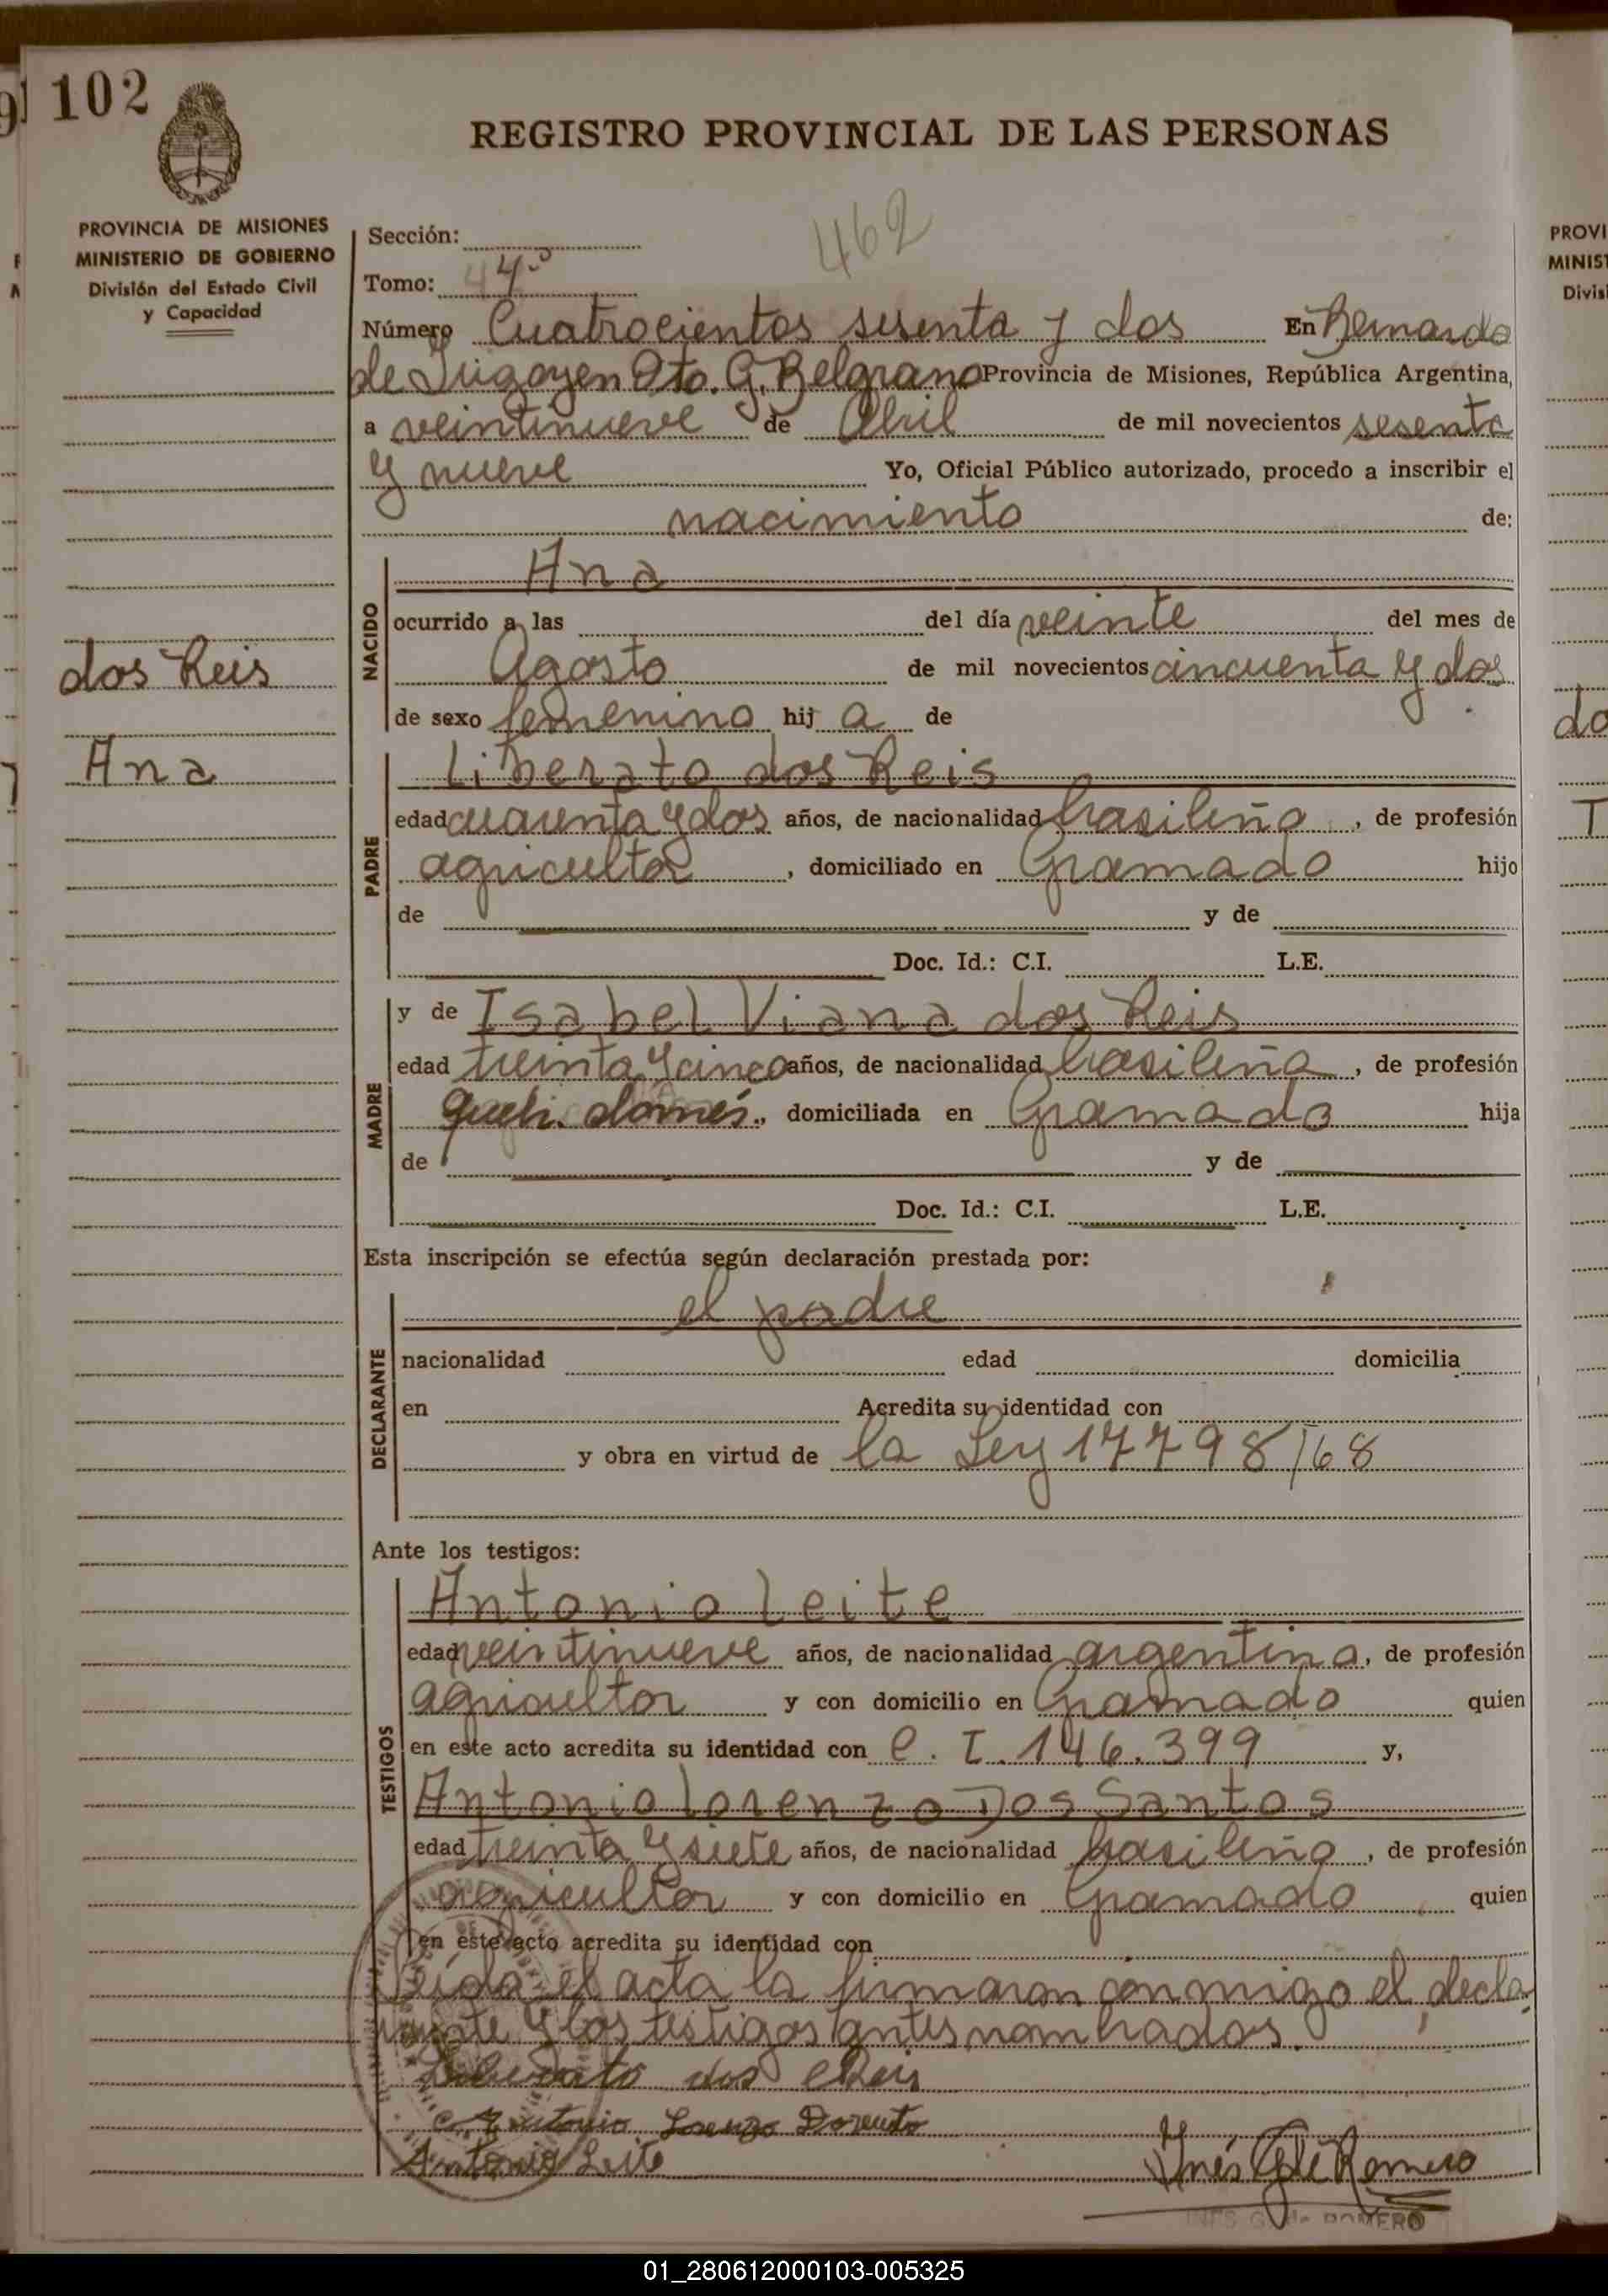 102
REGISTRO PROVINCIAL DE LAS PERSONAS
PROVINCIA DE MISIONES
MINISTERIO DE GOBIERNO
División del Estado Civil
y Capacidad
462
Sección:
Tomo: 4º
Número Cuatrocientos sesenta y dos En Bernardo
de Irigoyen Dto. G. Belgrano Provincia de Misiones, República Argentina,
a veintinueve de Abril de mil novecientos sesenta
y nueve Yo, Oficial Público autorizado, procedo a inscribir el
nacimiento de:
dos Reis
Ana
NACIDO
Ana
ocurrido a las del día veinte del mes de
Agosto de mil novecientos cincuenta y dos
de sexo femenino hij a de
PADRE
Liberato dos Reis
edad cuarenta y dos años, de nacionalidad brasileña, de profesión
agricultor, domiciliado en Gramado hijo
de y de
Doc. Id.: C.I. L.E.
MADRE
y de Isabel Viana dos Reis
edad treinta y cinco años, de nacionalidad brasileña, de profesión
queh. domés., domiciliada en Gramado hija
de y de
Doc. Id.: C.I. L.E.
Esta inscripción se efectúa según declaración prestada por:
DECLARANTE
el padre
nacionalidad edad domicilia
en Acredita su identidad con
y obra en virtud de la Ley 17798/68
Ante los testigos:
TESTIGOS
Antonio Leite
edad veintinueve años, de nacionalidad argentina, de profesión
agricultor y con domicilio en Gramado quien
en este acto acredita su identidad con C. I. 146.399 y,
Antonio Lorenzo Dos Santos
edad treinta y siete años, de nacionalidad brasileña, de profesión
agricultor y con domicilio en Gramado quien
en este acto acredita su identidad con
Leída el acta la firmaron conmigo el decla
rante y los testigos antes nombrados.
Liberato dos Reis
Antonio Lorenzo
Antonio Leite
Inés G. de Romero
INES G. de ROMERO
PROVI
MINIST
Divisi
01_280612000103-005325